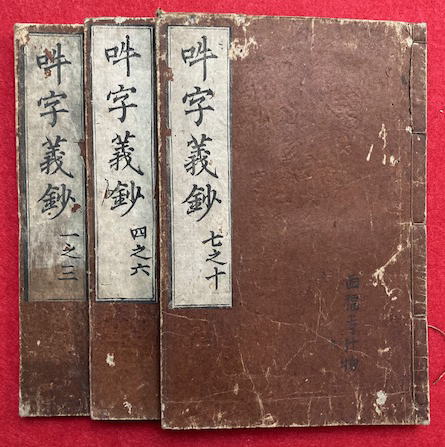 吽字義鈔 一之三
吽字義鈔 四之六
吽字義鈔 七之十